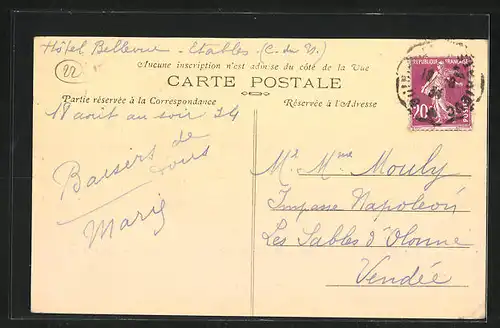 Hôtel Bellevue - Etables - (C. du N.)
22
Aucune inscription n'est admise du côté de la Vue
CARTE POSTALE
Partie réservée à la Correspondance
Réservée à l'Adresse
REPUBLIQUE FRANÇAISE
20c
POSTES
18 août au soir 24
Baisers de
tous
Marie
Mr. Mme Mouly
Impasse Napoléon
Les Sables d'Olonne
Vendée